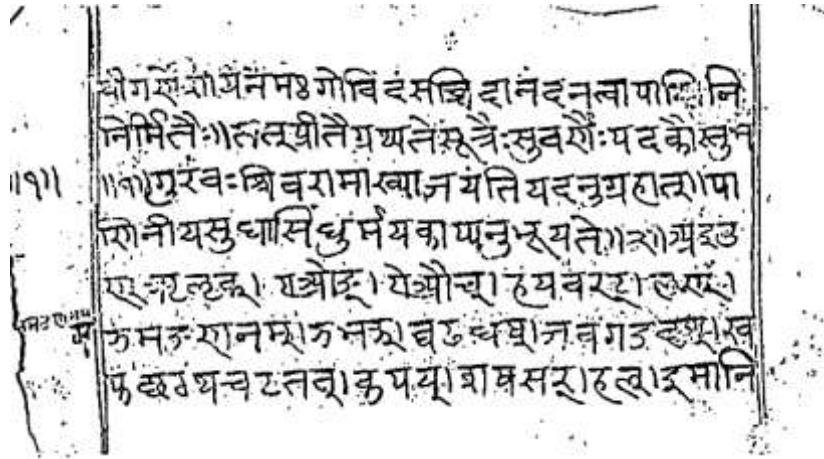 श्रीगणेशायनमः गोविंदंसच्चिदानंदंनत्वापाणिनि
निर्मितैः॥तत्प्रीतैग्रथ्यतेसूत्रैःसुवर्णैःपदकौस्तुभ
॥१॥ ॥१॥गुरवःशिवरामाख्याजयंतियदनुग्रहात्॥पा
णिनीयसुधासिंधुर्मयकाप्यनुभूयते॥२॥अइउ
ण्ऋलृक्। एओङ्। ऐऔच्। हयवरट्। लण्।
ञमङणनम्। झभञ्। घढधष्। जबगडदश्। ख
फछठथचटतव्। कपय्। शषसर्। हल्। इमानि